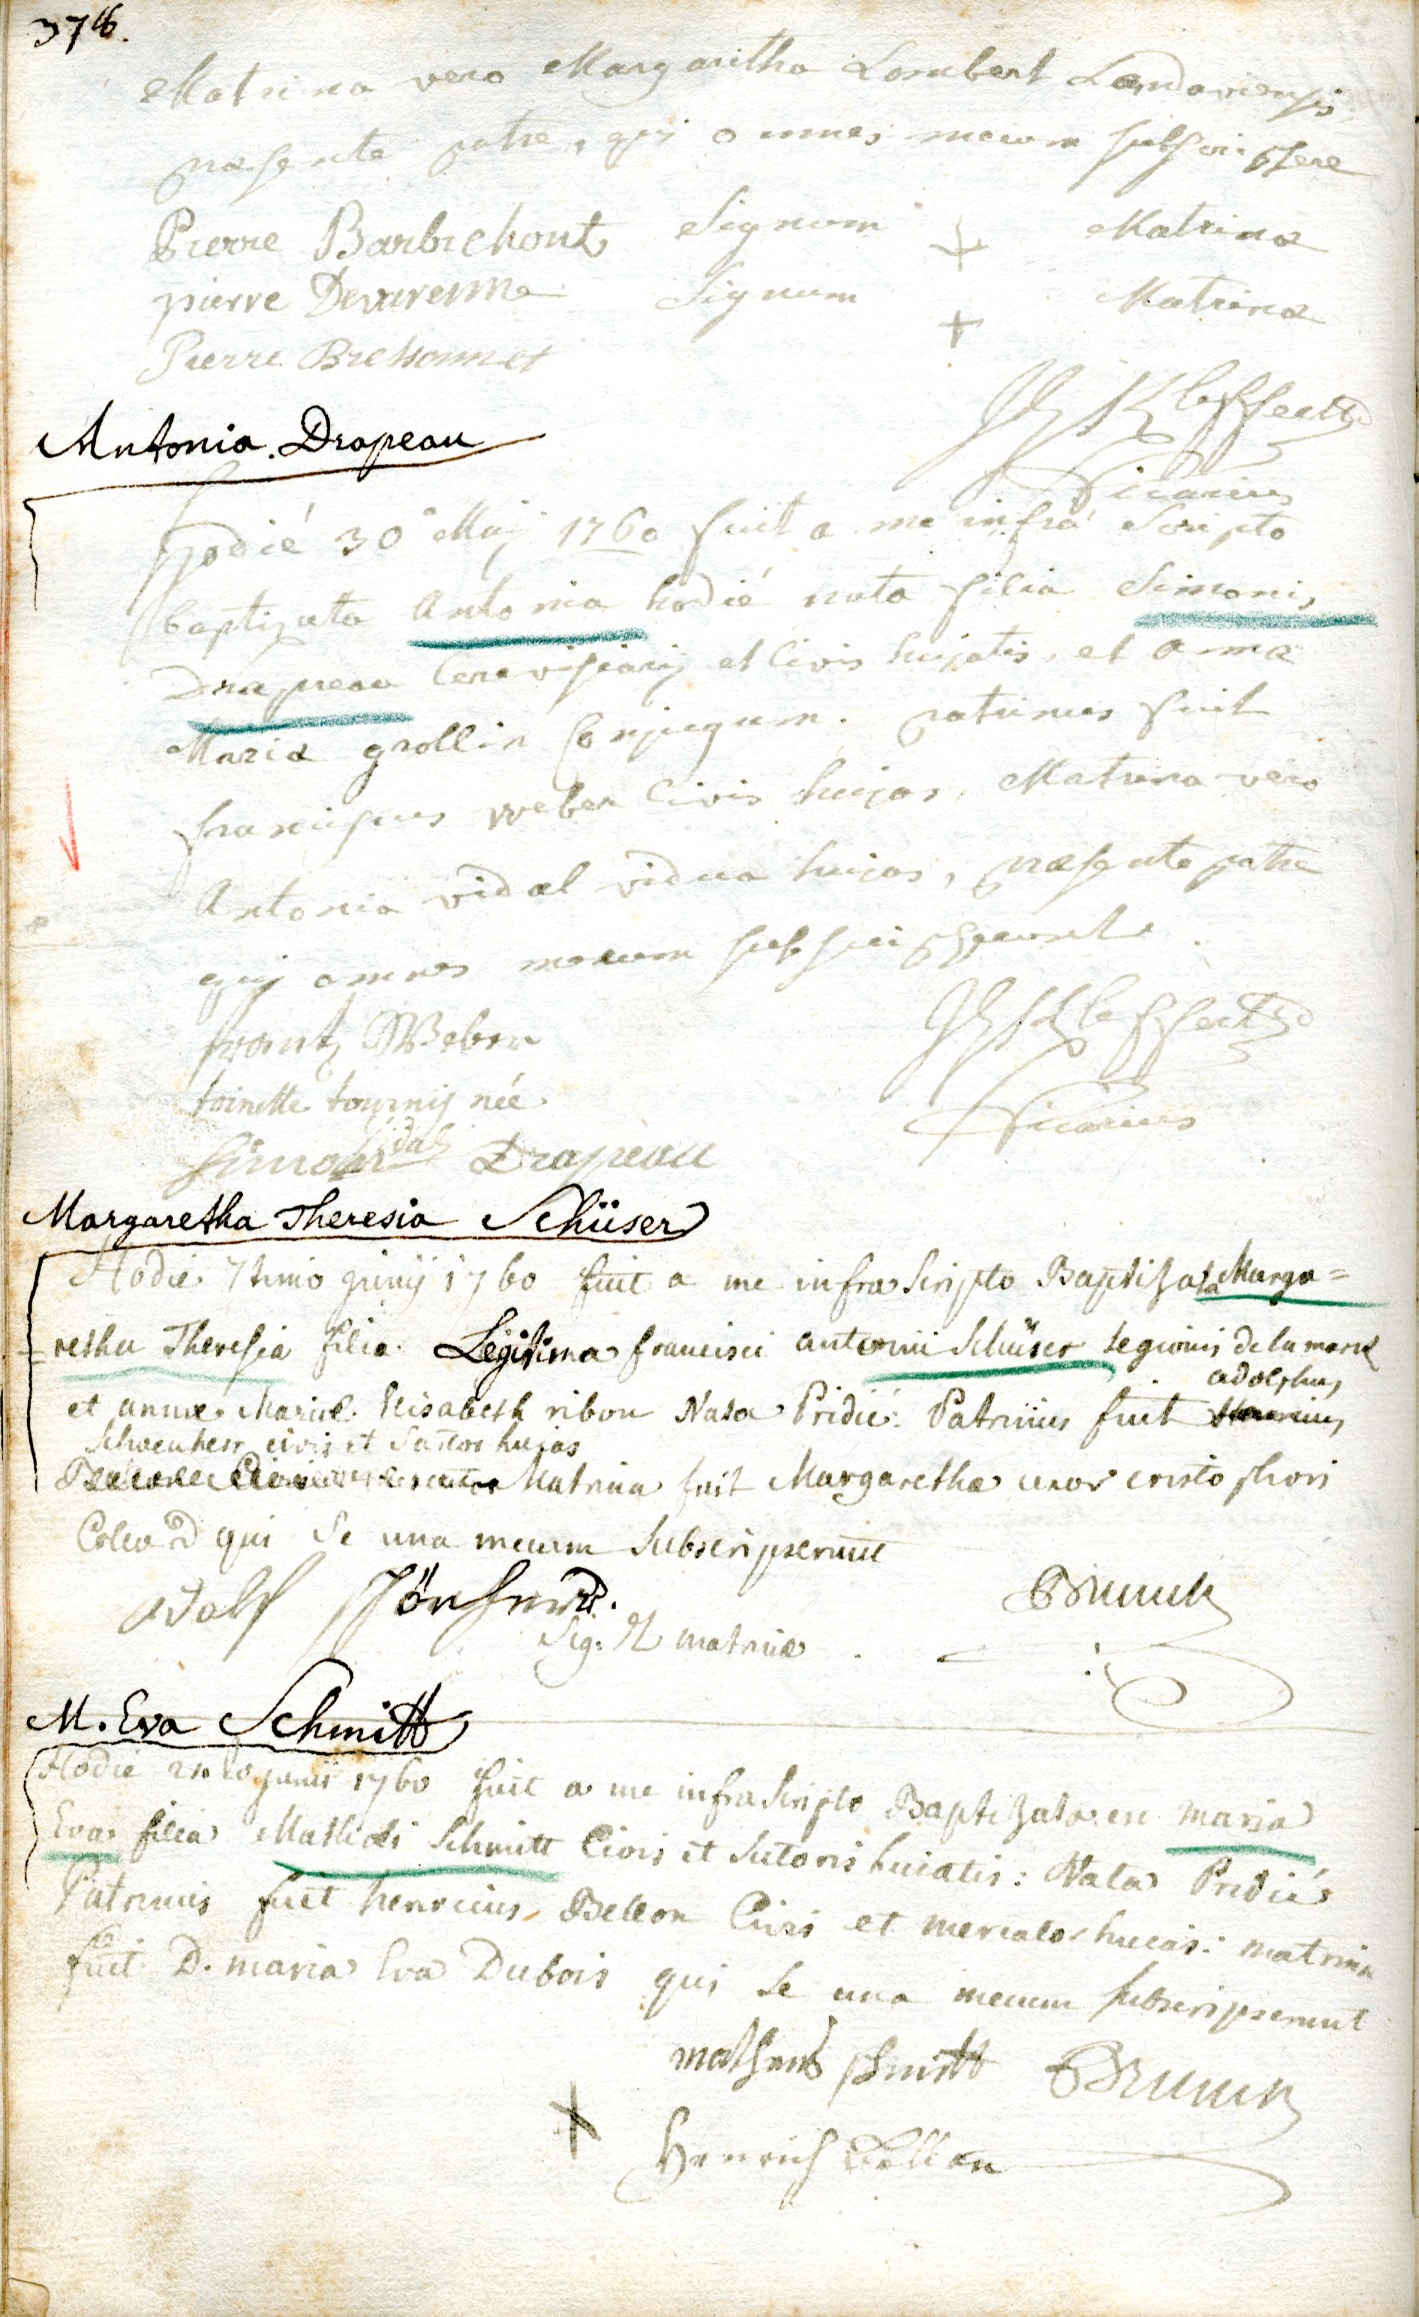 376.
Matrina vero Margaritha Lombert Landaviensis
præsente patre, qui omnes mecum subscripsere
Pierre Barbichont Signum + Matrinæ
pierre Devarenne Signum + Matrinæ
Pierre Bressonnet
Vicarius
Antonia Drapeau
Hodié 30° Maij 1760 fuit a me infrá Scripto
baptizata Antonia hodié nata filia Simonis
Drapeau Cerevisiarij et Civis hujatis, et Annæ
Mariæ grollin Conjugum. patrinus fuit
franciscus weber Civis hujas, Matrina vero
Antonia vidal vidua hujas, præsente patre
qui omnes mecum subscripserunt.
frantz Weber
toinette tournij née
Vidal
Simon Drapeau
Vicarius
Margaretha Theresia Schüser
Hodie 7timo junij 1760 fuit a me infra Scripto Baptizata Marga=
retha Theresia filia Legitima francisci antonii Schüser Legionis de la marck
et annæ Mariæ Elisabeth ribon Nata Pridié: Patrinus fuit adolphus
Schoenherr civis et Sartor hujas
Matrina fuit Margaretha uxor cristophori
qui Se una mecum Subscripserunt
Adolf Schönherr.
Brunck
Sig: matrinæ
M. Eva Schmitt
Hodie junii 1760 fuit a me infra Scripto Baptizata est maria
Eva filia Mathæi Schmitt Civis et Sutoris huiatis: Nata Pridié
Patrinus fuit henricus Bellon Civis et mercator huias: matrina
fuit D. maria Eva Dubois qui Se una mecum subscripserunt
matheus schmitt Brunck
+ Henrich Bellon